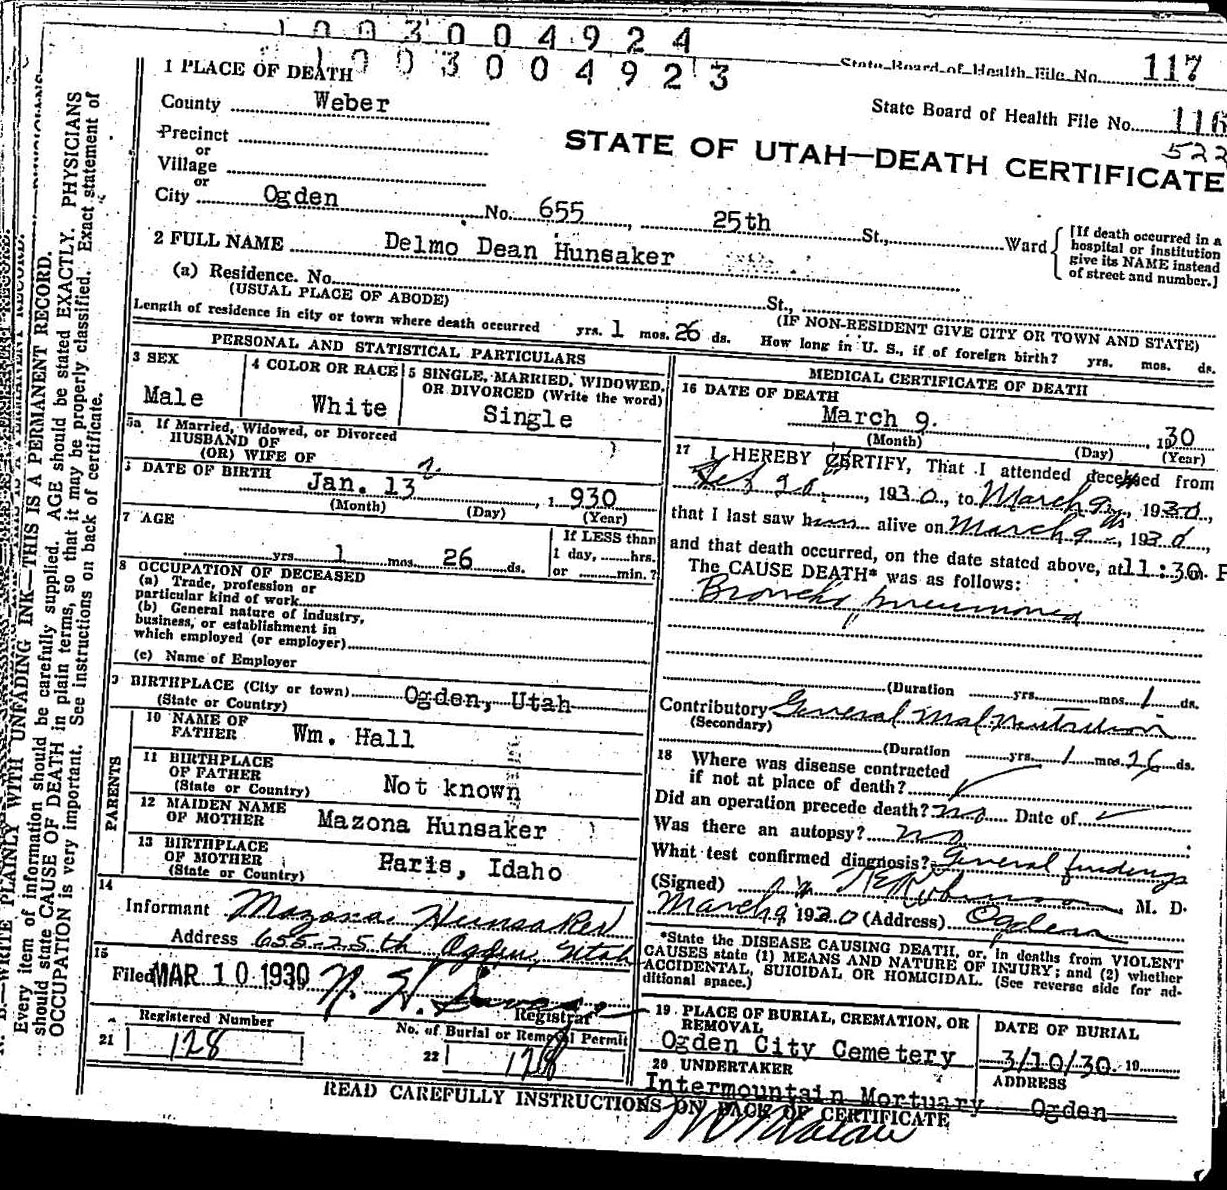 1003004924
State Board of Health File No. 117
1003004923
1 PLACE OF DEATH
State Board of Health File No. 116
522
County Weber
STATE OF UTAH—DEATH CERTIFICATE
Precinct
or
Village
or
City Ogden No. 655, 25th St., Ward
[If death occurred in a hospital or institution give its NAME instead of street and number.]
2 FULL NAME Delmo Dean Hunsaker
(a) Residence. No. St.,
(USUAL PLACE OF ABODE) (IF NON-RESIDENT GIVE CITY OR TOWN AND STATE)
Length of residence in city or town where death occurred yrs. 1 mos. 26 ds. How long in U. S., if of foreign birth? yrs. mos. ds.
PERSONAL AND STATISTICAL PARTICULARS
3 SEX
Male
4 COLOR OR RACE
White
5 SINGLE, MARRIED, WIDOWED, OR DIVORCED (Write the word)
Single
5a If Married, Widowed, or Divorced
HUSBAND OF
(OR) WIFE OF
DATE OF BIRTH
Jan. 13, 1930
(Month) (Day) (Year)
7 AGE
yrs. 1 mos. 26 ds.
If LESS than
1 day, hrs.
or min.?
8 OCCUPATION OF DECEASED
(a) Trade, profession or
particular kind of work
(b) General nature of industry,
business, or establishment in
which employed (or employer)
(c) Name of Employer
9 BIRTHPLACE (City or town) Ogden, Utah
(State or Country)
PARENTS
10 NAME OF FATHER Wm. Hall
11 BIRTHPLACE OF FATHER (State or Country) Not known
12 MAIDEN NAME OF MOTHER Mazona Hunsaker
13 BIRTHPLACE OF MOTHER (State or Country) Paris, Idaho
14
Informant Mazona Hunsaker
Address 655-25th Ogden, Utah
15
Filed MAR 10 1930
Registrar
Registered Number
21 128
No. of Burial or Removal Permit
22 128
MEDICAL CERTIFICATE OF DEATH
16 DATE OF DEATH
March 9. , 1930
(Month) (Day) (Year)
17 I HEREBY CERTIFY, That I attended deceased from
Feb 20, 1930, to March 9, 1930,
that I last saw him alive on March 9th, 1930,
and that death occurred, on the date stated above, at 11:30 P
The CAUSE DEATH* was as follows:
Broncho pneumonia
(Duration yrs. mos. 1 ds.
Contributory General Malnutrition
(Secondary)
(Duration yrs. 1 mos. 26 ds.
18 Where was disease contracted
if not at place of death?
Did an operation precede death? no Date of
Was there an autopsy? no
What test confirmed diagnosis? General findings
(Signed) M. D.
March 9 1930 (Address) Ogden
*State the DISEASE CAUSING DEATH, or, in deaths from VIOLENT
CAUSES state (1) MEANS AND NATURE OF INJURY; and (2) whether
ACCIDENTAL, SUICIDAL OR HOMICIDAL. (See reverse side for ad-
ditional space.)
19 PLACE OF BURIAL, CREMATION, OR REMOVAL
Ogden City Cemetery
DATE OF BURIAL
3/10/30 19
20 UNDERTAKER
Intermountain Mortuary
ADDRESS
Ogden
READ CAREFULLY INSTRUCTIONS ON BACK OF CERTIFICATE
WRITE PLAINLY WITH UNFADING INK—THIS IS A PERMANENT RECORD.
Every item of information should be carefully supplied. AGE should be stated EXACTLY. PHYSICIANS
should state CAUSE OF DEATH in plain terms, so that it may be properly classified. Exact statement of
OCCUPATION is very important. See instructions on back of certificate.